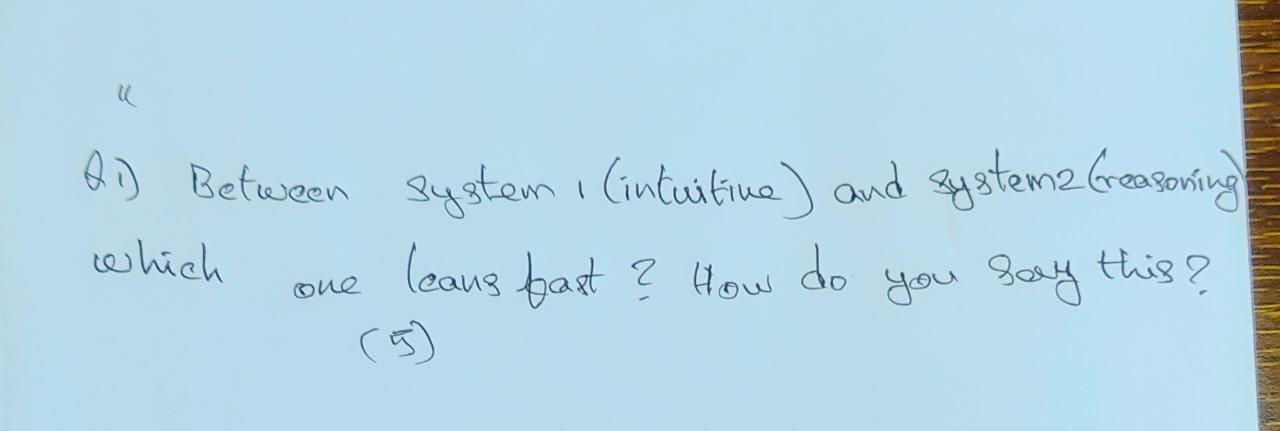 "
Q1) Between system 1 (intuitive) and system2 (reasoning)
which one leans fast? How do you say this?
(5)